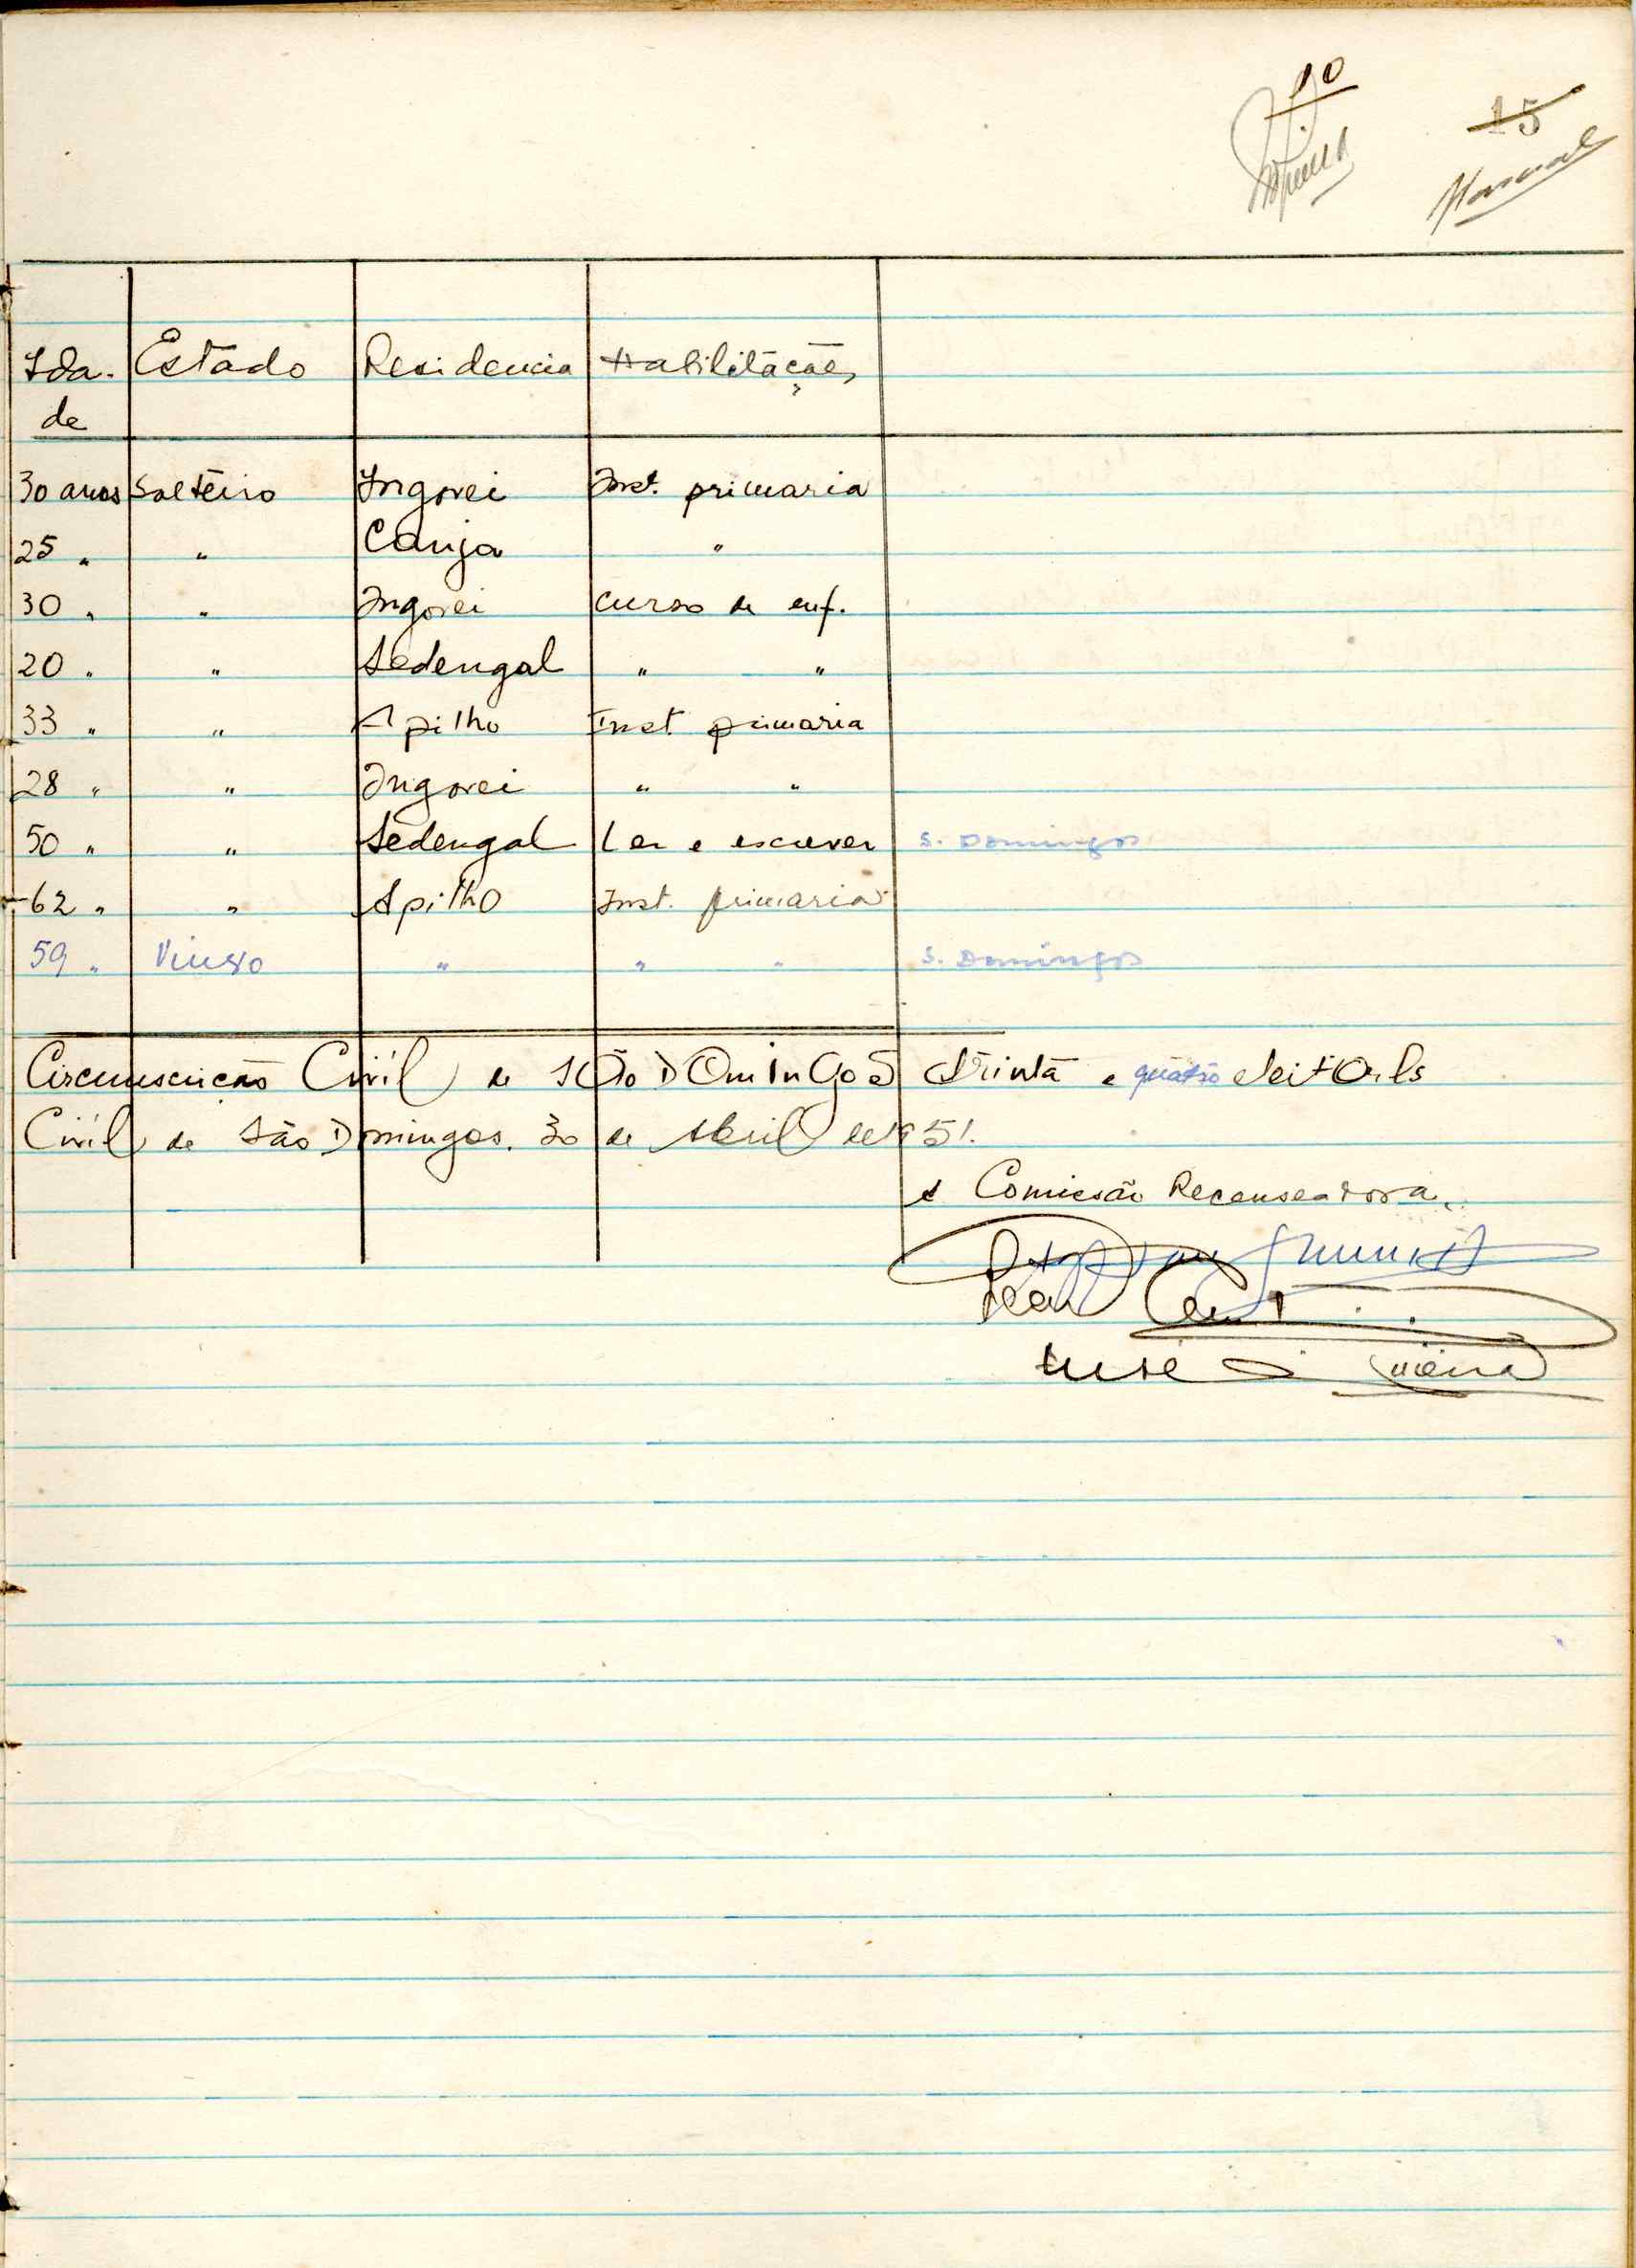 10
15
Ida- Estado Residencia Habilitações
de
30 anos Solteiro Ingorei Inst. primaria
25 " " Canja "
30 " " Ingorei curso de enf.
20 " " Sedengal " "
33 " " Apilho Inst. primaria
28 " " Ingorei " "
50 " " Sedengal Ler e escrever S. Domingos
62 " " Apilho Inst. primaria
59 " Viuvo " " " S. Domingos
Circunscrição Civil de São Domingos trinta e quatro eleitores
Civil de São Domingos. 30 de Abril de 1951.
A Comissão Recenseadora,